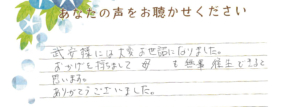 あなたの声をお聴かせください
武藤様には大変お世話になりました。
おかげを持ちまして 母 も無事 往生できたと
思います。
ありがとうございました。